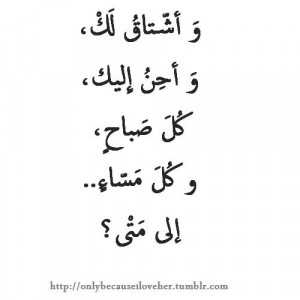 وَ أشّتاقُ لَكْ،
وَ أحِنُ إِليك،
كُلَ صَباحٍ،
و كُلَ مَسّاءٍ..
إلى مَتْى؟
http://onlybecauseiloveher.tumblr.com